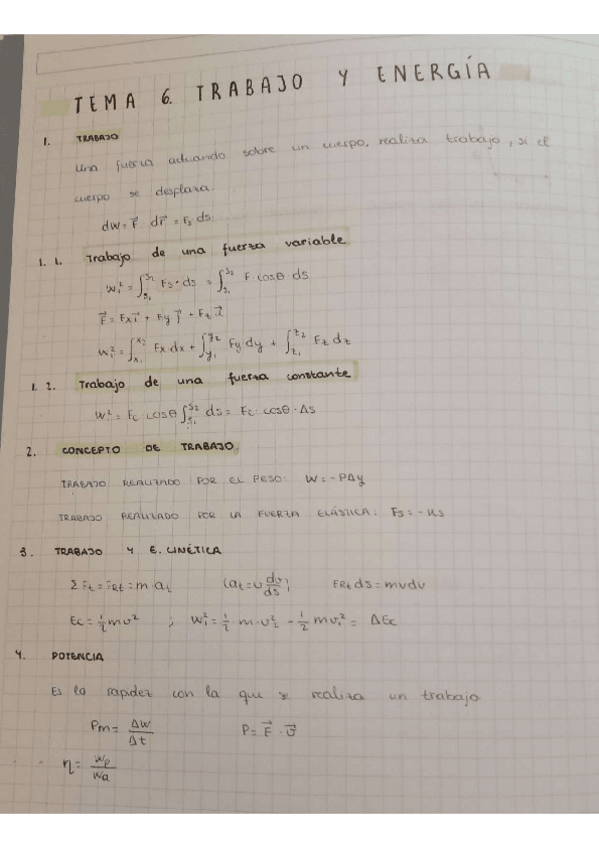 TEMA 6. TRABAJO Y ENERGÍA
1. TRABAJO
Una fuerza actuando sobre un cuerpo, realiza trabajo, si el
cuerpo se desplaza.
dW = F⃗ dr⃗ = Fs ds.
1. 1. Trabajo de una fuerza variable
W₁² = ∫_{S₁}^{S₂} Fs · ds = ∫_{S₁}^{S₂} F · cosθ · ds
F⃗ = Fx i⃗ + Fy j⃗ + Fz k⃗
W₁² = ∫_{x₁}^{x₂} Fx dx + ∫_{y₁}^{y₂} Fy dy + ∫_{z₁}^{z₂} Fz dz
1. 2. Trabajo de una fuerza constante
W² = Fc · cosθ ∫_{S₁}^{S₂} ds = Fc · cosθ · Δs
2. CONCEPTO DE TRABAJO
TRABAJO REALIZADO POR EL PESO: W = - PΔy
TRABAJO REALIZADO POR LA FUERZA ELÁSTICA: Fs = - Ks
3. TRABAJO Y E. CINÉTICA
Σ Ft = FRt = m · at (at = v dv/ds) FRt ds = mvdv
Ec = 1/2 mv² ; W₁² = 1/2 · m · v₂² - 1/2 mv₁² = ΔEc
4. POTENCIA
Es la rapidez con la que se realiza un trabajo
Pm = ΔW/Δt P = F⃗ · v⃗
η = Wp/Wa